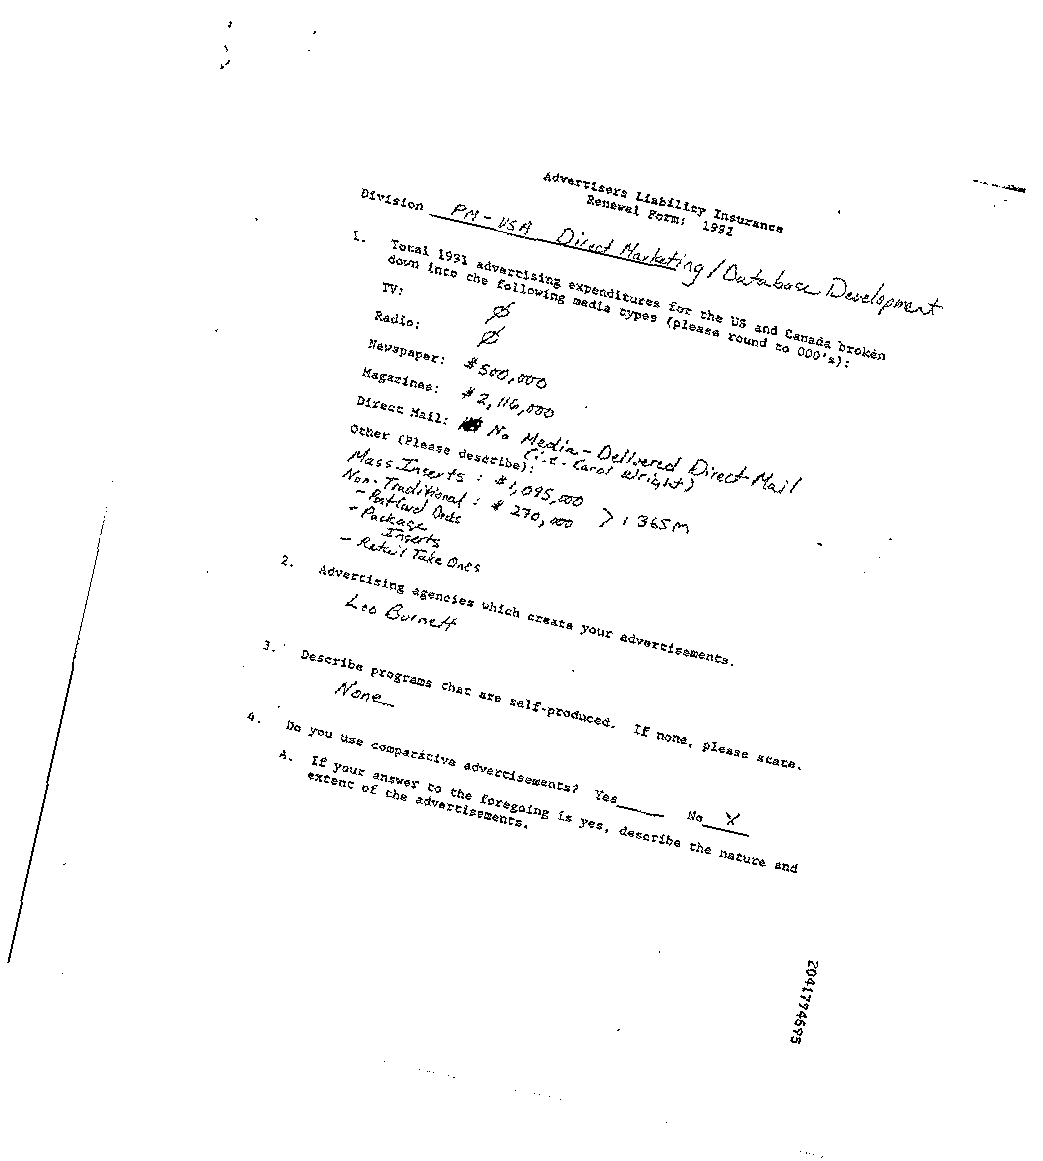 Advertisers Liability Insurance
Renewal Form: 1992
Division PM-USA Direct Marketing/Database Development
1. Total 1991 advertising expenditures for the US and Canada broken
down into the following media types (please round to 000's):
TV: Ø
Radio: Ø
Newspaper: $500,000
Magazines: $2,116,000
Direct Mail: No Media-Delivered Direct Mail
(i.e. Carol Wright)
Other (Please describe):
Mass Inserts: $1,095,000
Non-Traditional: $270,000 > 1365M
- PostCard Decks
- Package
Inserts
- Retail Take Ones
2. Advertising agencies which create your advertisements.
Leo Burnett
3. Describe programs that are self-produced. If none, please state.
None
4. Do you use comparative advertisements? Yes____ No X
A. If your answer to the foregoing is yes, describe the nature and
extent of the advertisements.
2041794695